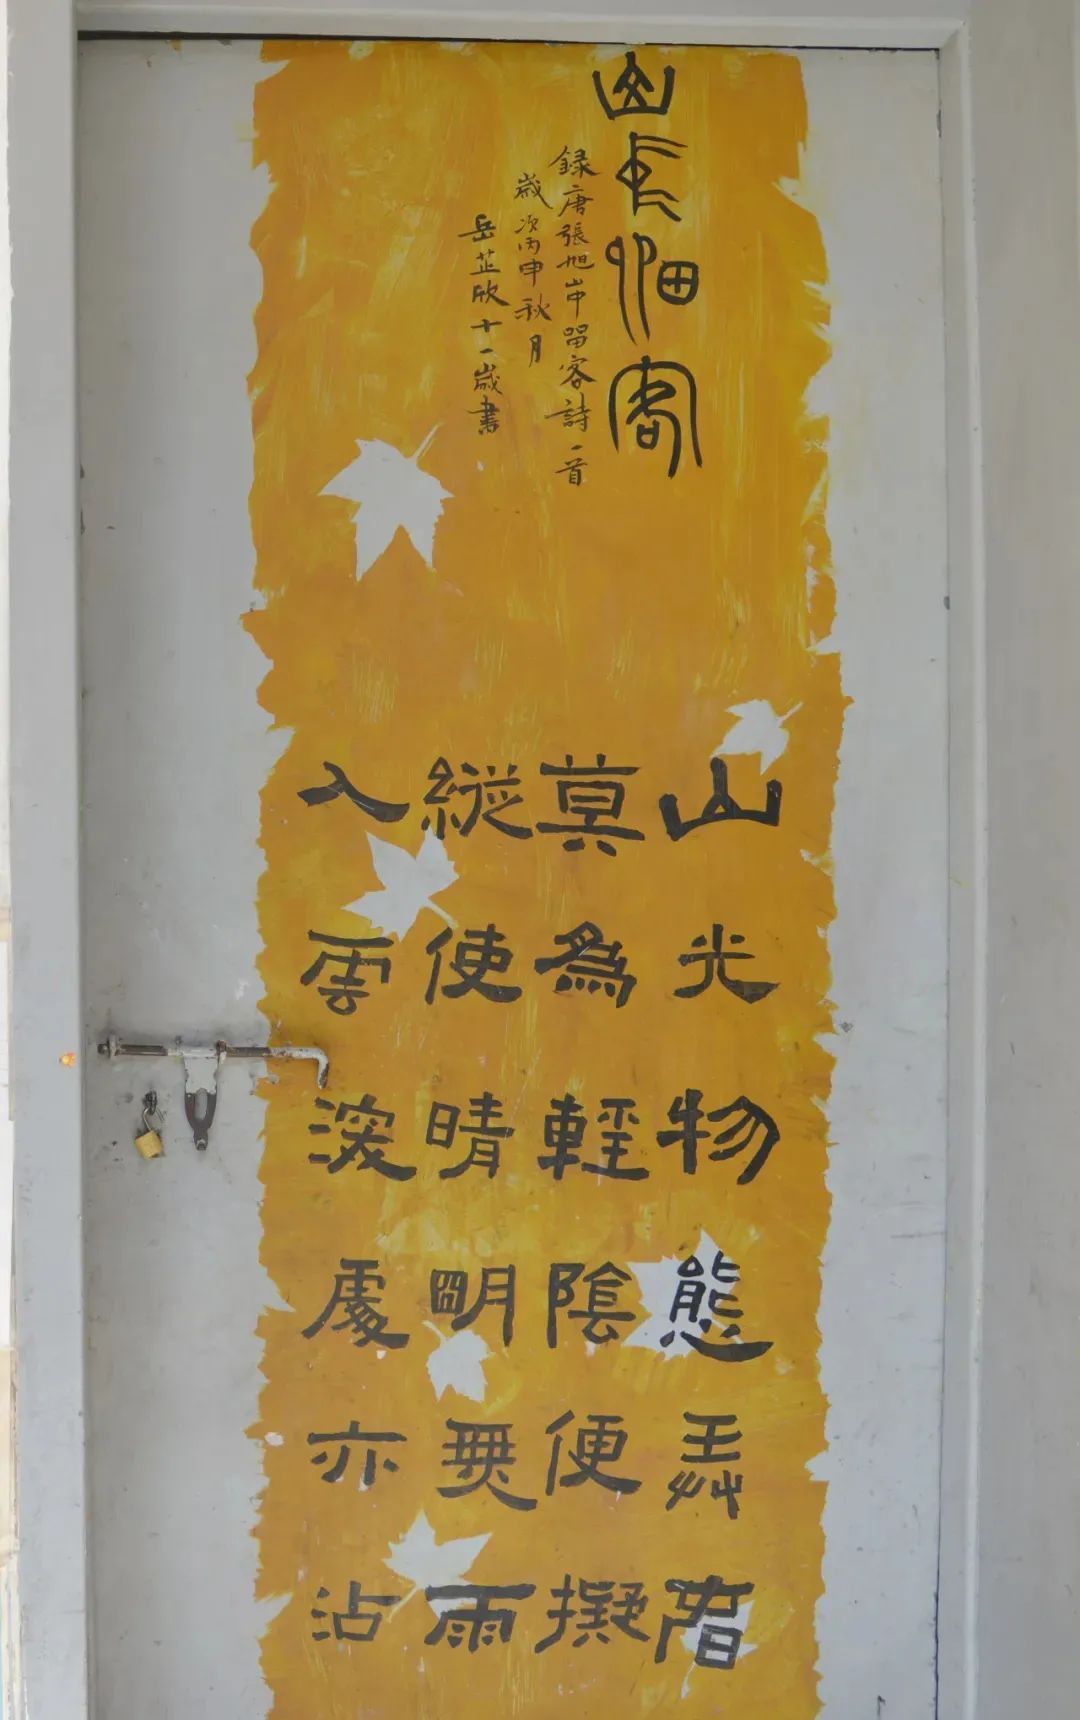 山中留客
録唐張旭山中留客詩一首
歲次丙申秋月
岳芷欣十一歲書
山光物態弄春
莫為輕陰便擬
縱使晴明無雨
入雲深處亦沾